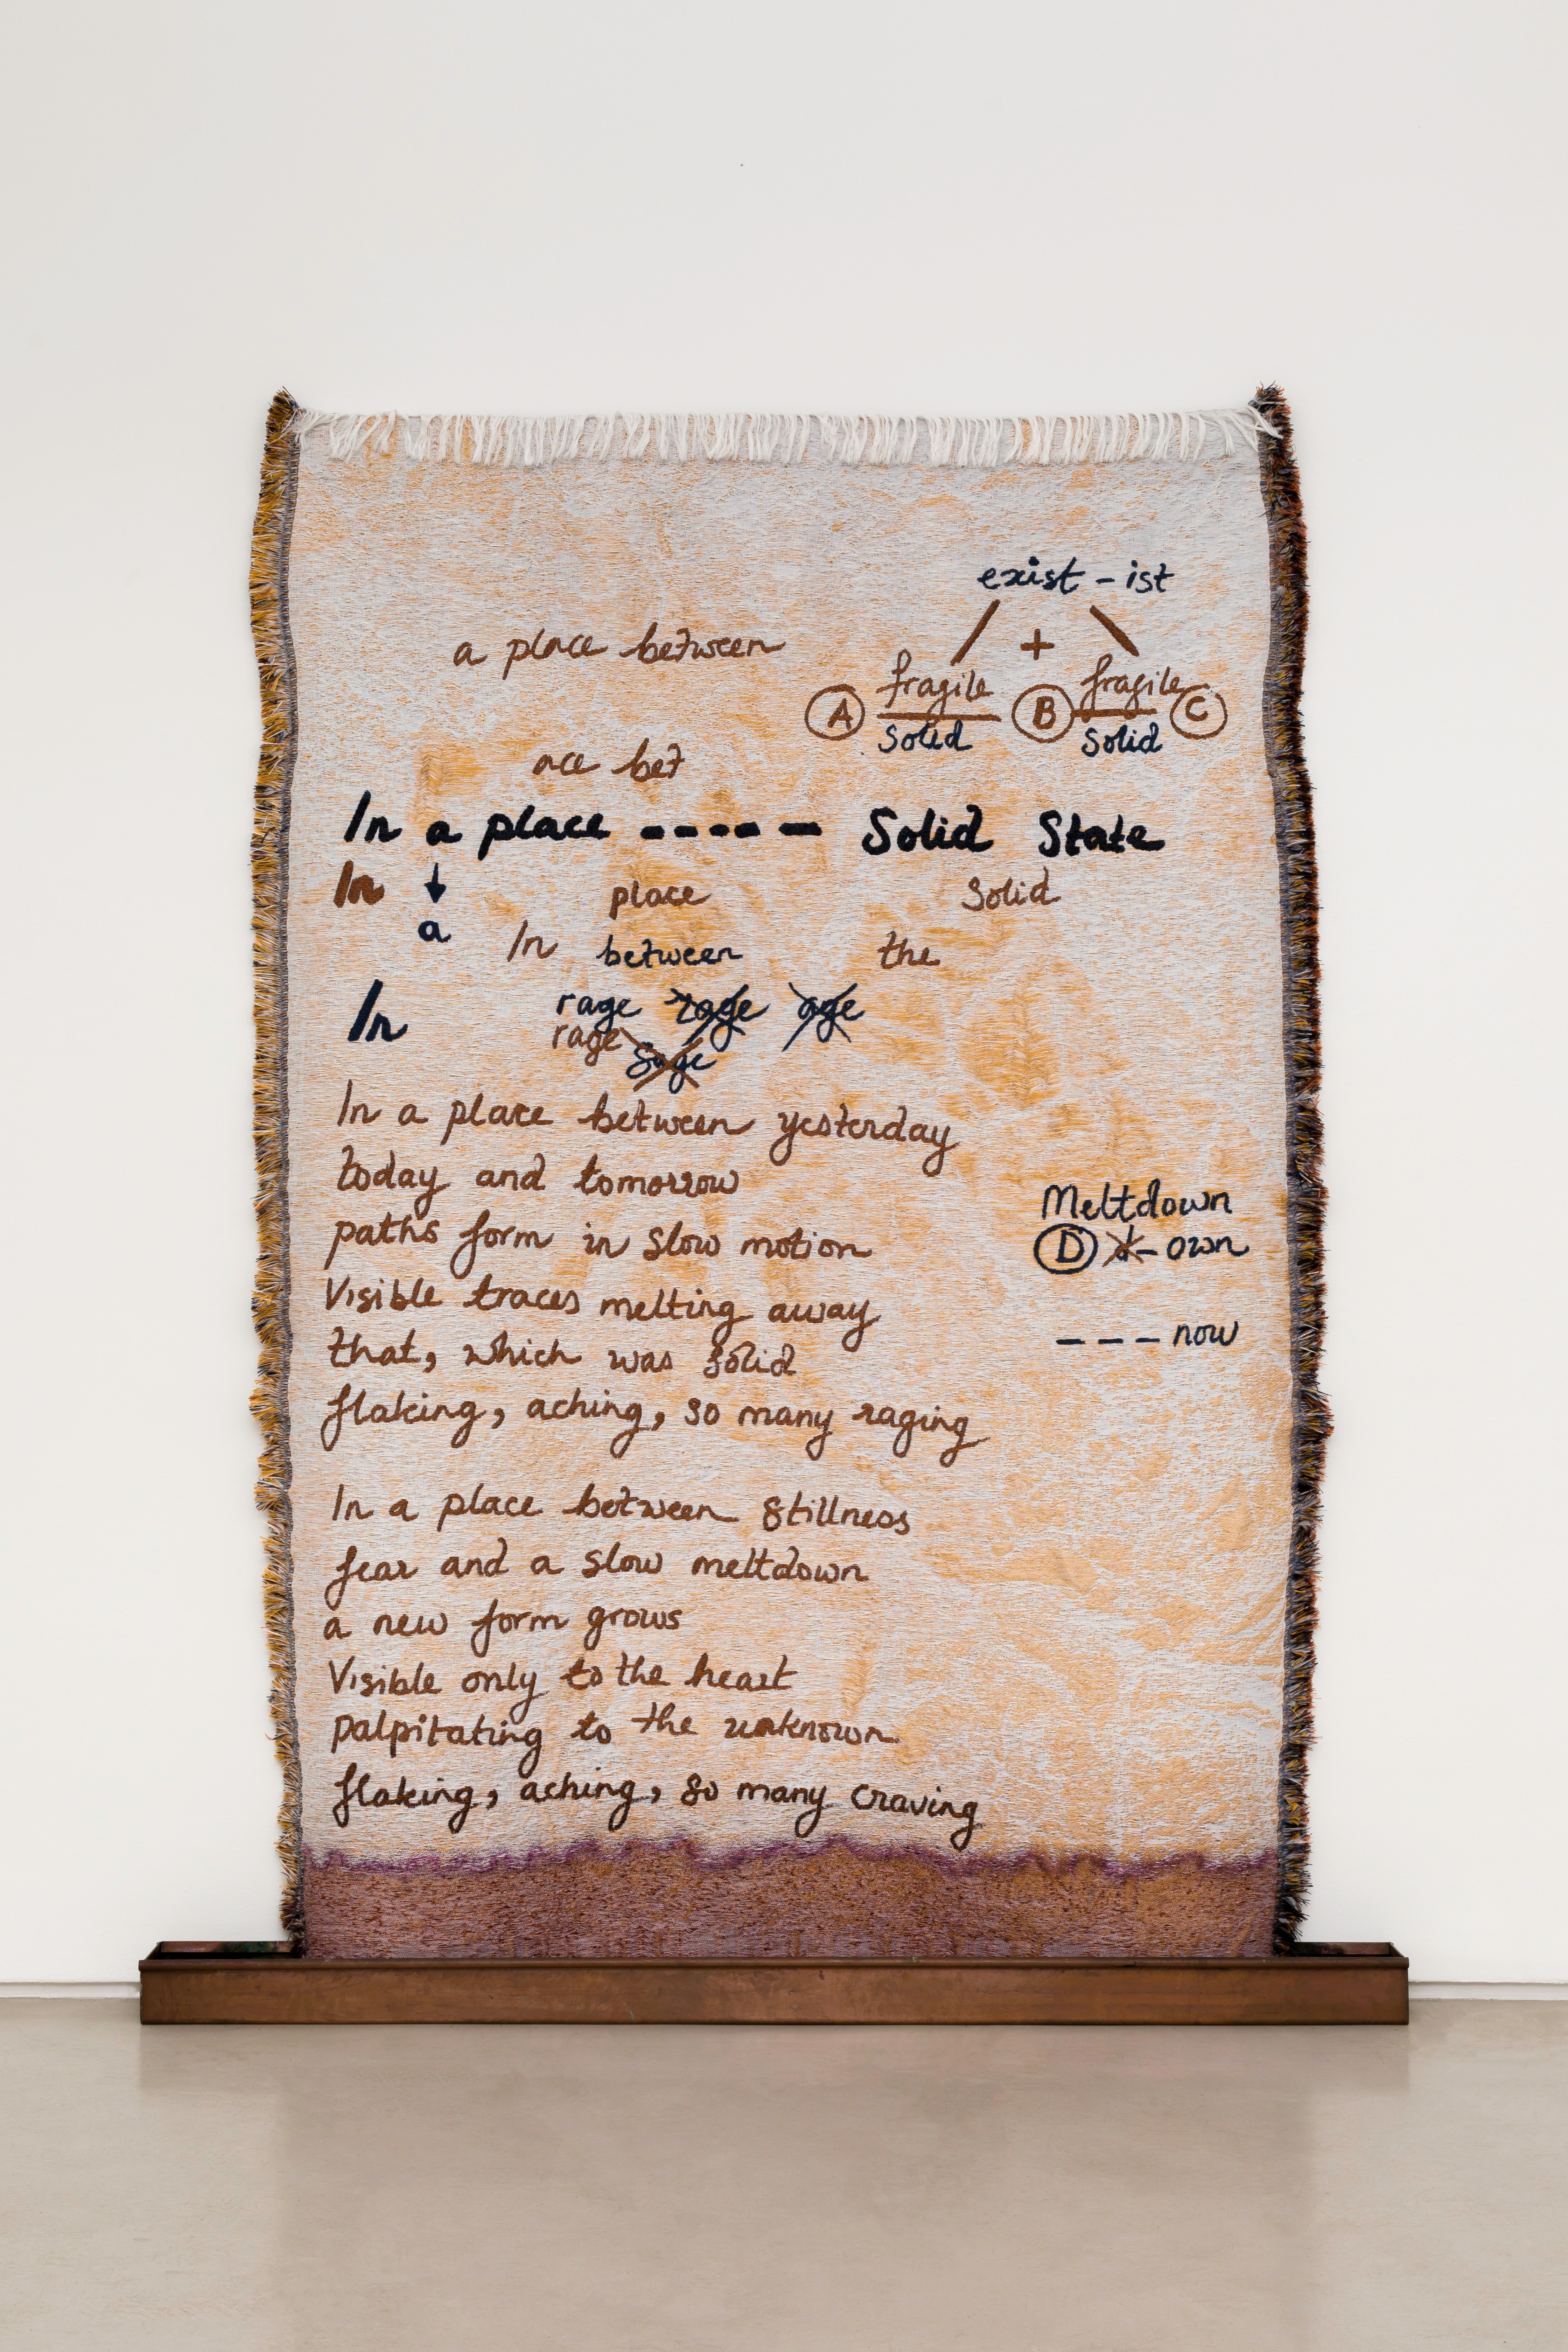 exist - ist
a place between
+
fragile fragile
A B C
solid solid
ace bet
In a place ----- Solid State
In ↓ place Solid
a In between the
In rage rage age
rage sage
In a place between yesterday
today and tomorrow
paths form in slow motion
Visible traces melting away
that, which was solid
flaking, aching, so many raging
Meltdown
D d - own
--- now
In a place between stillness
fear and a slow meltdown
a new form grows
Visible only to the heart
palpitating to the unknown
flaking, aching, so many craving